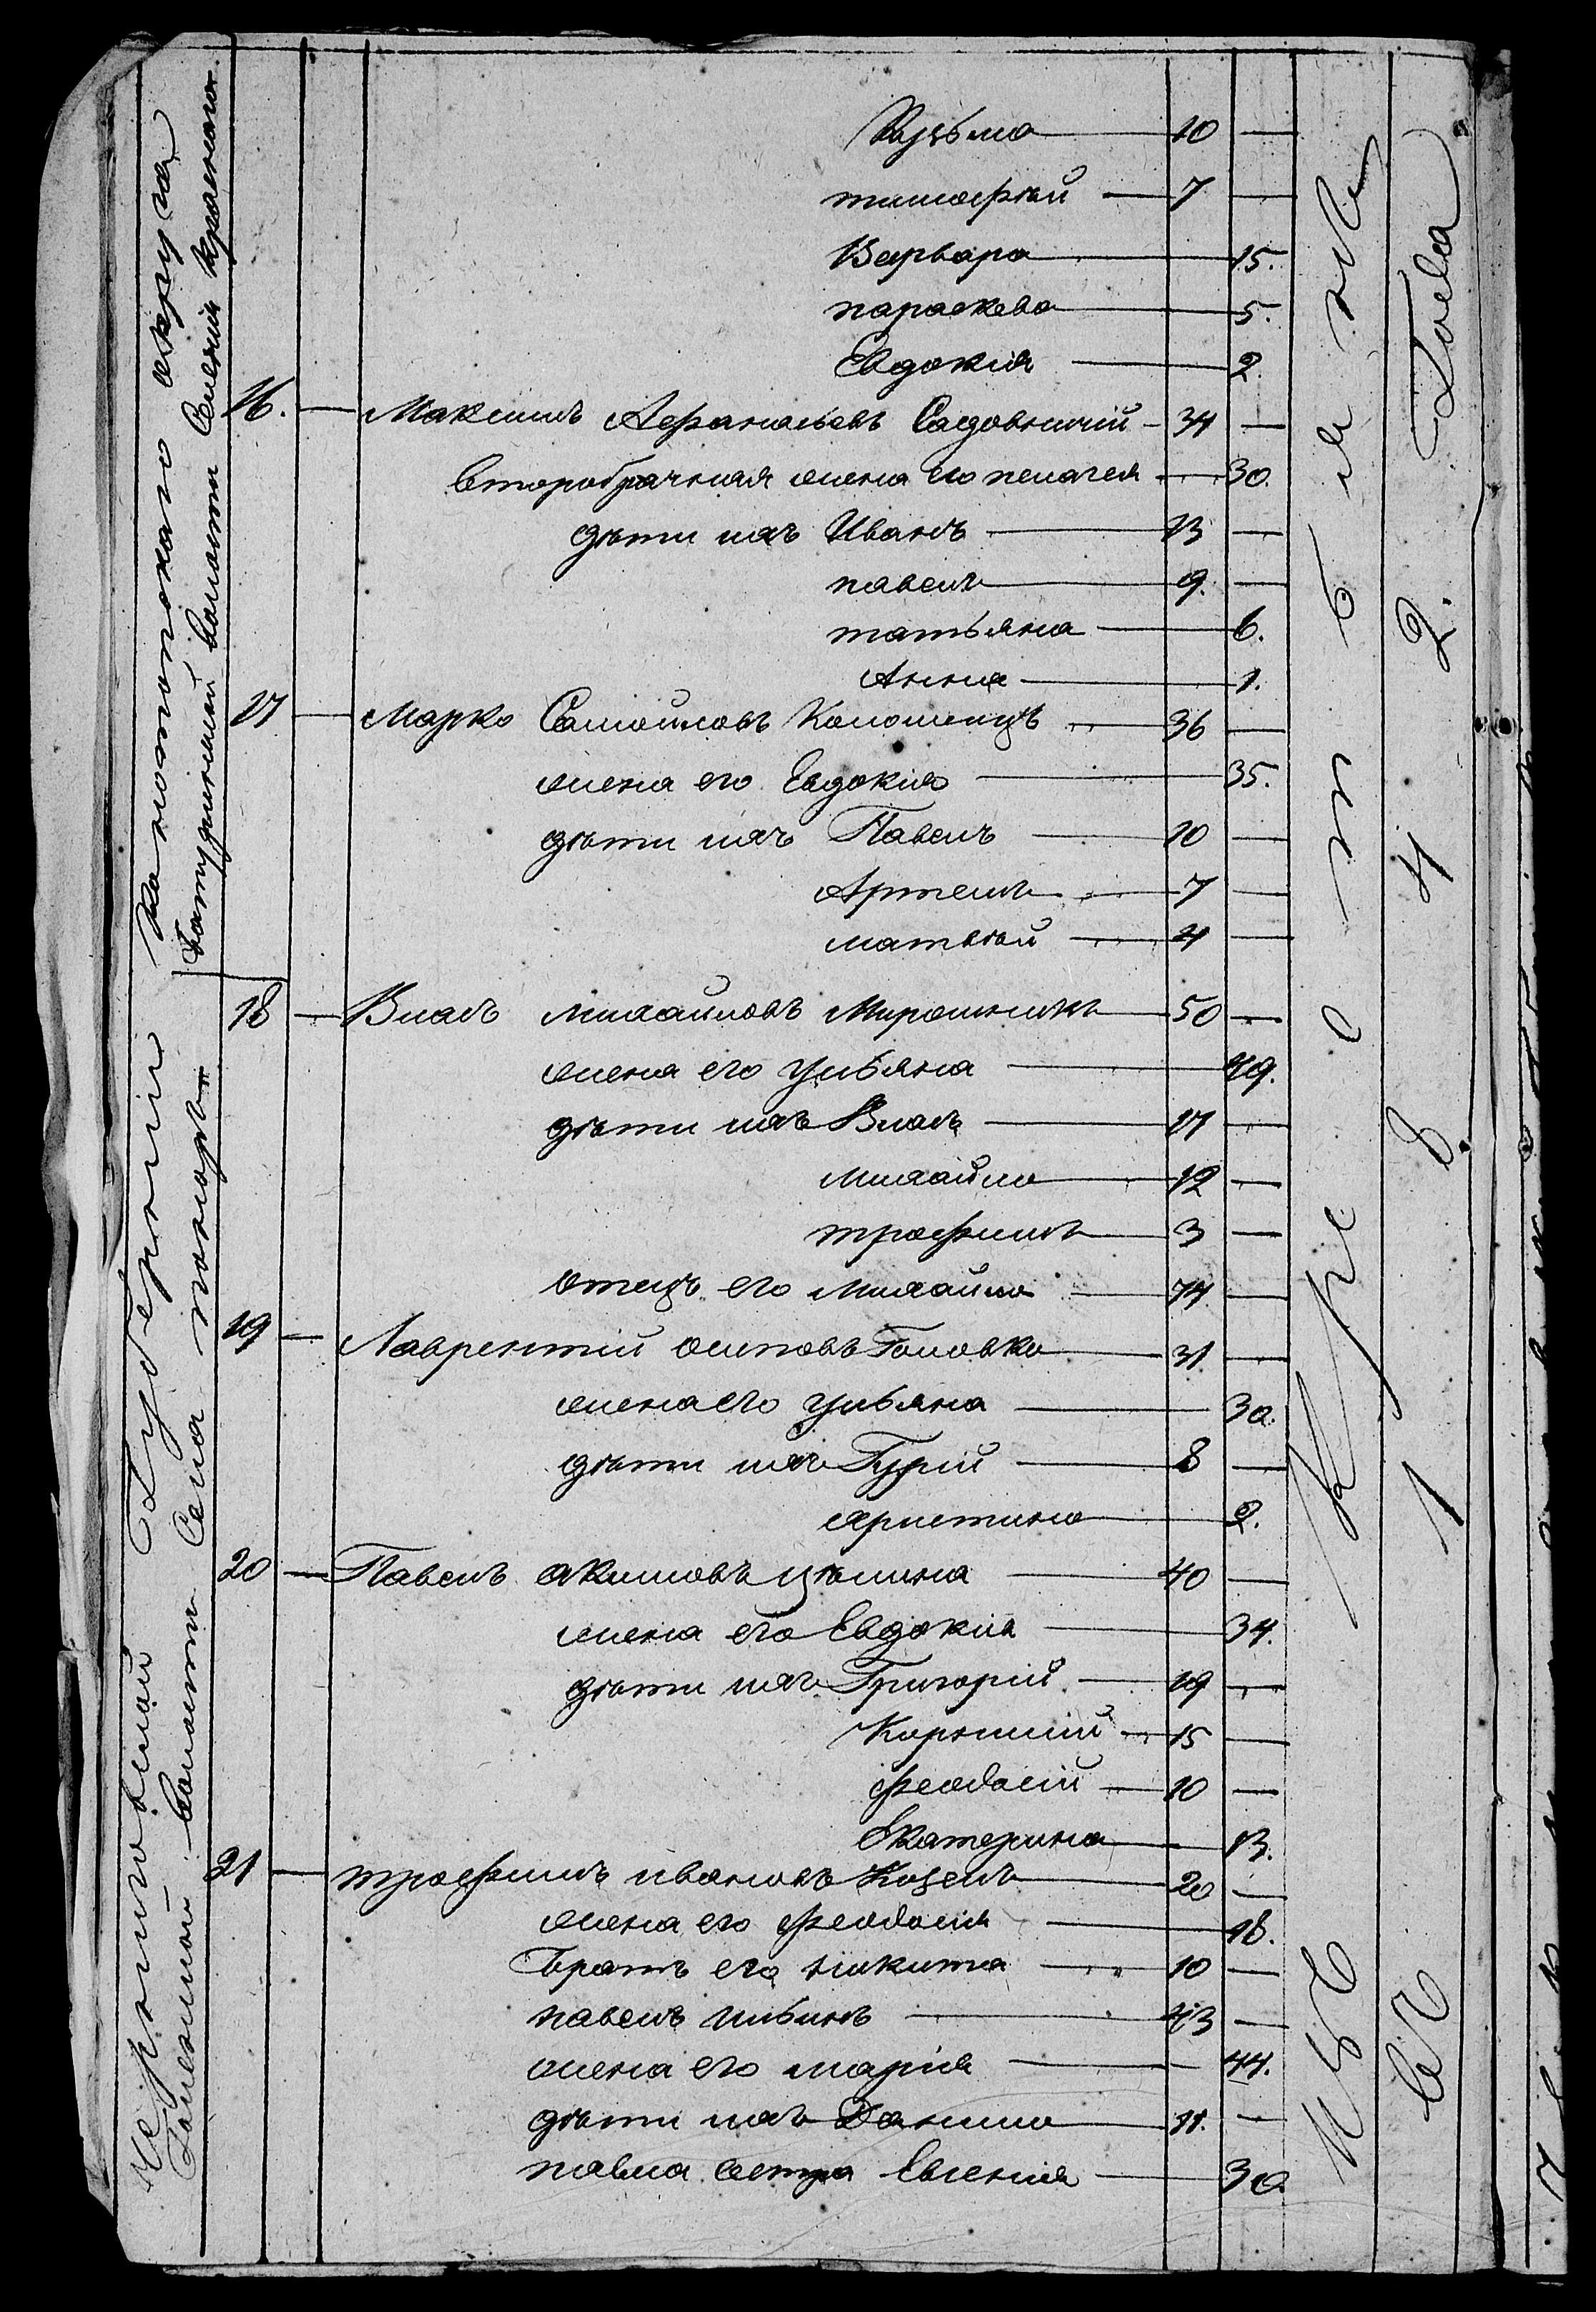 Кузьма — 10 —
тимофѣй — 7 —
Варвара — 15.
параскева — 5.
Евдокія — 2.
16. — Максимъ Афанасьевъ Садовничій — 34 —
второбрачная жена его пелагея — 30.
дѣти ихъ Иванъ — 13 —
павелъ — 9. —
татьяна — 6.
Анна — 1.
17 — Марко Самойловъ Коломіецъ — 36 —
жена его Евдокія — 35.
дѣти ихъ Павелъ — 10 —
Артемъ — 7 —
матвѣй — 4 —
18 — Власъ михайловъ Мирошникъ — 50 —
жена его ульяна — 49.
дѣти ихъ Власъ — 17 —
Михайло — 12 —
трофимъ — 3 —
отецъ его Михайло — 74 —
19 — Лаврентій осиповъ Головко — 31 —
жена его ульяна — 30.
дѣти ихъ Гурій — 8 —
христина — 2.
20 — Павелъ акимовъ цѣлина — 40 —
жена его Евдокія — 34.
дѣти ихъ Григорій — 19 —
Корнилій — 15 —
феодосій — 10 —
Екатерина — 13.
21 — трофимъ ивановъ Козелъ — 20 —
жена его феодосія — 18.
Братъ его никита — 10 —
павелъ ильинъ — 43 —
жена его марія — 44.
дѣти ихъ Данило — 11. —
павла сестра Евгенія — 30.
Черниговской Губерніи Конотопскаго округа
волости Села
Батуринской волости Селенія Краснаго
Изъ Крестьянъ
въ 18 42. Года